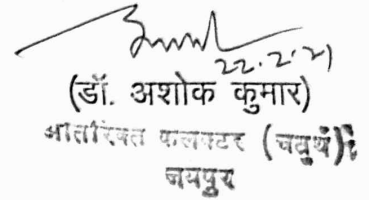 22.2.21
(डॉ. अशोक कुमार)
अतिरिक्त कलक्टर (चतुर्थ)
जयपुर